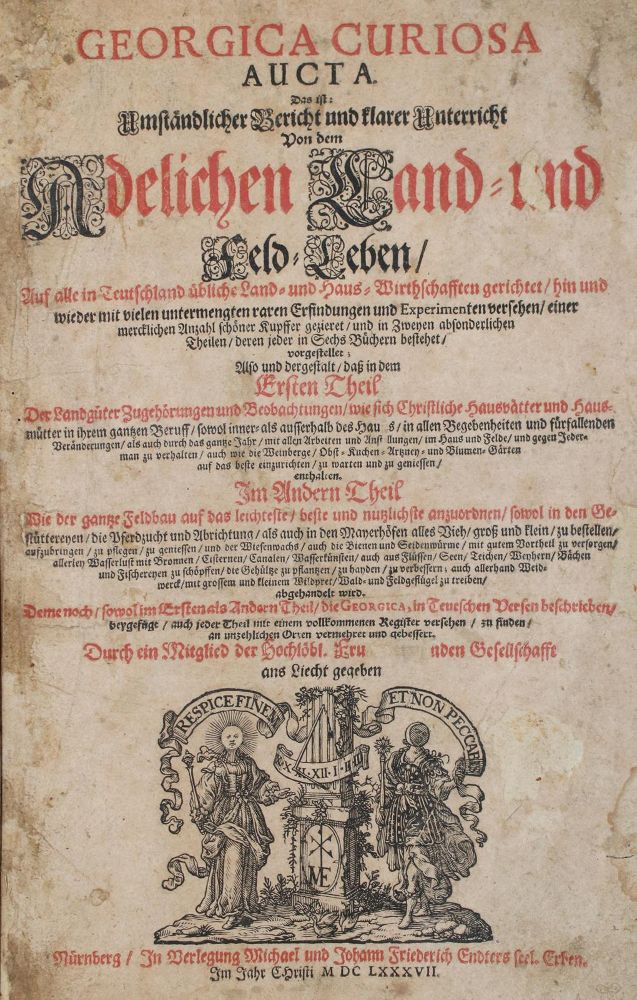 GEORGICA CURIOSA
AUCTA.
Das ist:
Umständlicher Bericht und klarer Unterricht
Von dem
Adelichen Land- und
Feld-Leben/
Auf alle in Teutschland übliche Land- und Haus-Wirthschafften gerichtet/ hin und
wieder mit vielen untermengten raren Erfindungen und Experimenten versehen/ einer
mercklichen Anzahl schöner Kupffer gezieret/ und in Zweyen absonderlichen
Theilen/ deren jeder in Sechs Büchern bestehet/
vorgestellet;
Also und dergestalt/ daß in dem
Ersten Theil
Der Landgüter Zugehörungen und Beobachtungen/ wie sich Christliche Hausvätter und Haus-
mütter in ihrem gantzen Beruff/ sowol inner- als ausserhalb des Hau s/ in allen Begebenheiten und fürfallenden
Veränderungen/ als auch durch das gantze Jahr/ mit allen Arbeiten und Anst llungen/ im Haus und Felde/ und gegen Jeder-
man zu verhalten/ auch wie die Weinberge/ Obst- Kuchen- Artzney- und Blumen-Gärten
auf das beste einzurichten/ zu warten und zu geniessen/
enthalten.
Im Andern Theil
Wie der gantze Feldbau auf das leichteste/ beste und nutzlichste anzuordnen/ sowol in den Ge-
stüttereyen/ die Pferdzucht und Abrichtung/ als auch in den Mayerhöfen alles Vieh/ groß und klein/ zu bestellen/
aufzubringen/ zu pflegen/ zu geniessen/ und der Wiesenwachs/ auch die Bienen und Seidenwürme/ mit gutem Vortheil zu versorgen/
allerley Wasserlust mit Bronnen/ Cisternen/ Canalen/ Wasserkünsten/ auch aus Flüssen/ Seen/ Teichen/ Weyhern/ Bächen
und Fischereyen zu schöpffen/ die Gehültze zu pflantzen/ zu hayden/ zu verbessern; auch allerhand Weid-
werck/ mit grossem und kleinem Wildpret/ Wald- und Feldgeflügel zu treiben/
abgehandelt wird.
Deme noch/ sowol im Ersten als Andern Theil/ die GEORGICA, in Teutschen Versen beschrieben/
beygefügt/ auch jeder Theil mit einem vollkommenen Register versehen/ zu finden/
an unzehlichen Orten vermehret und gebessert.
Durch ein Mitglied der Hochlöbl. Fru nden Gesellschafft
ans Liecht gegeben
RESPICE FINEM ET NON PECCABIS
X·XI·XII·I·II·III
MF
Nürnberg/ In Verlegung Michael und Johann Friederich Endters seel. Erben.
Im Jahr CHristi M DC LXXXVII.